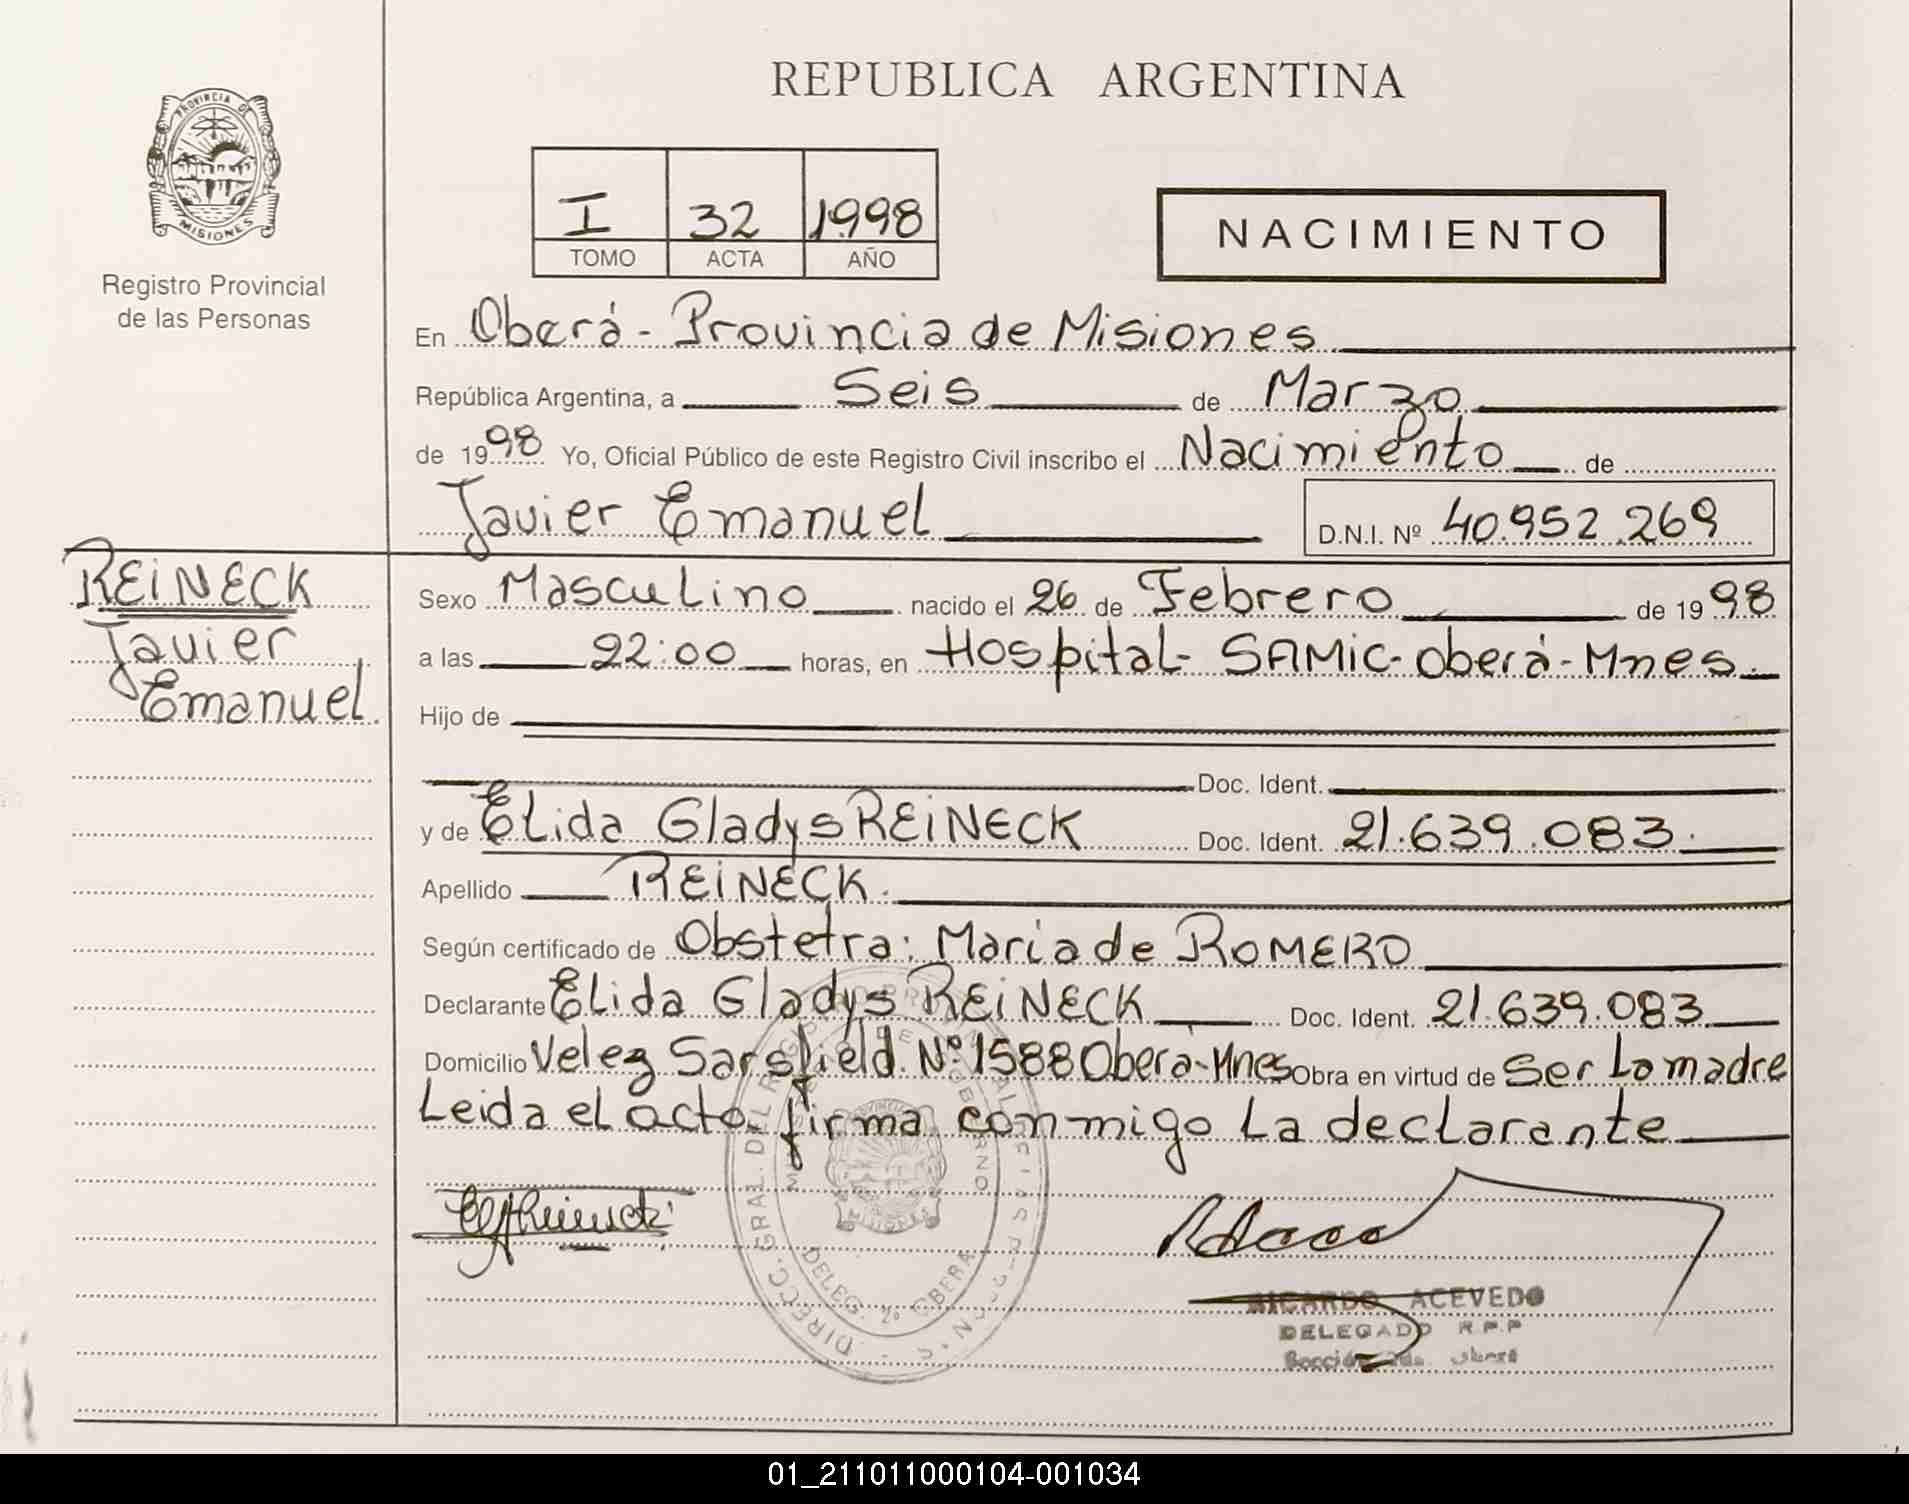 REPUBLICA ARGENTINA
PROVINCIA DE
MISIONES
Registro Provincial
de las Personas
I 32 1998
TOMO ACTA AÑO
NACIMIENTO
En Oberá - Provincia de Misiones
República Argentina, a Seis de Marzo
de 1998 Yo, Oficial Público de este Registro Civil inscribo el Nacimiento de
Javier Emanuel D.N.I. Nº 40.952.269
REINECK
Javier
Emanuel.
Sexo Masculino nacido el 26 de Febrero de 1998
a las 22:00 horas, en Hospital- SAMIC- Oberá- Mnes.
Hijo de
Doc. Ident.
y de Elida Gladys REINECK Doc. Ident. 21.639.083.
Apellido REINECK.
Según certificado de Obstetra: Maria de ROMERO
Declarante Elida Gladys REINECK Doc. Ident. 21.639.083
Domicilio Velez Sarsfield. Nº 1588 Oberá-Mnes Obra en virtud de Ser La madre
Leida el acta firma conmigo La declarante
DELEG. 2º OBERA
RICARDO ACEVEDO
DELEGADO R.P.P
Sección 2da. Oberá
01_211011000104-001034